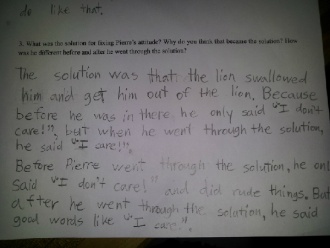 do like that.
3. What was the solution for fixing Pierre's attitude? Why do you think that became the solution? How
was he different before and after he went through the solution?
The solution was that the lion swallowed
him and get him out of the lion. Because
before he was in there, he only said "I don't
care!", but when he went through the solution,
he said "I care!".
Before Pierre went through the solution, he on
said "I don't care!" and did rude things. But
after he went through the solution, he said
good words like "I care."